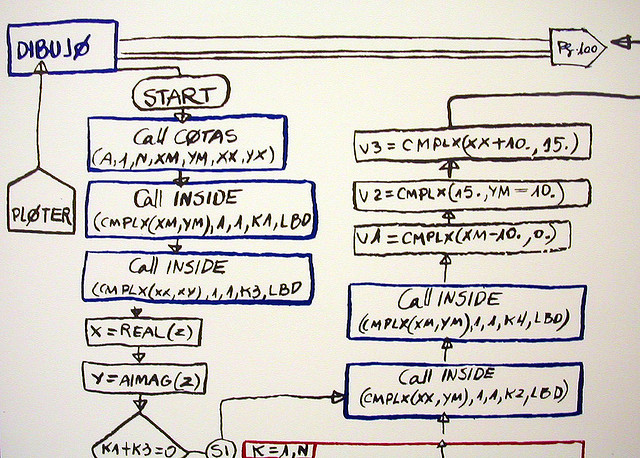 DIBUJØ
Pg.100
START
Call CØTAS
(A,1,N,XM,YM,XX,YX)
Call INSIDE
(CMPLX(XM,YM),1,1,K1,LBD
Call INSIDE
(CMPLX(XX,XY),1,1,K3,LBD
X=REAL(Z)
Y=AIMAG(Z)
K1+K3=0
SI
PLØTER
V3=CMPLX(XX+10.,15.)
V2=CMPLX(15.,YM-10.)
V1=CMPLX(XM-10.,0.)
Call INSIDE
(CMPLX(XM,YM),1,1,K4,LBD)
Call INSIDE
(CMPLX(XX,YM),1,1,K2,LBD)
K=1,N